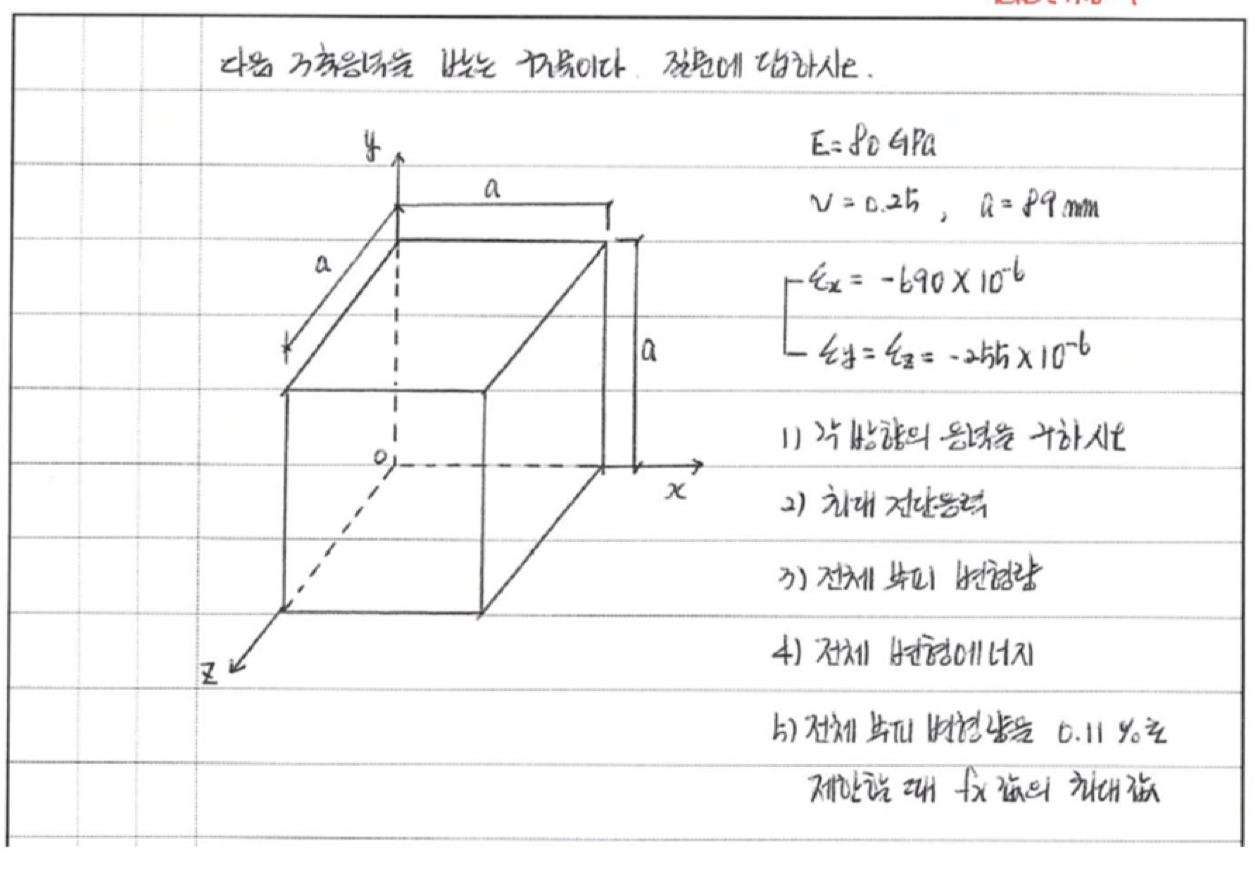 다음 3축응력을 받는 구조물이다. 질문에 답하시오.
E = 80 GPa
ν = 0.25 , a = 89 mm
εx = -690 X 10⁻⁶
εy = εz = -255 X 10⁻⁶
y
a
a
a
o
x
z
1) 각 방향의 응력을 구하시오
2) 최대 전단응력
3) 전체 부피 변형량
4) 전체 변형에너지
5) 전체 부피 변형량을 0.11 %로
제한할 때 fx 값의 최대값